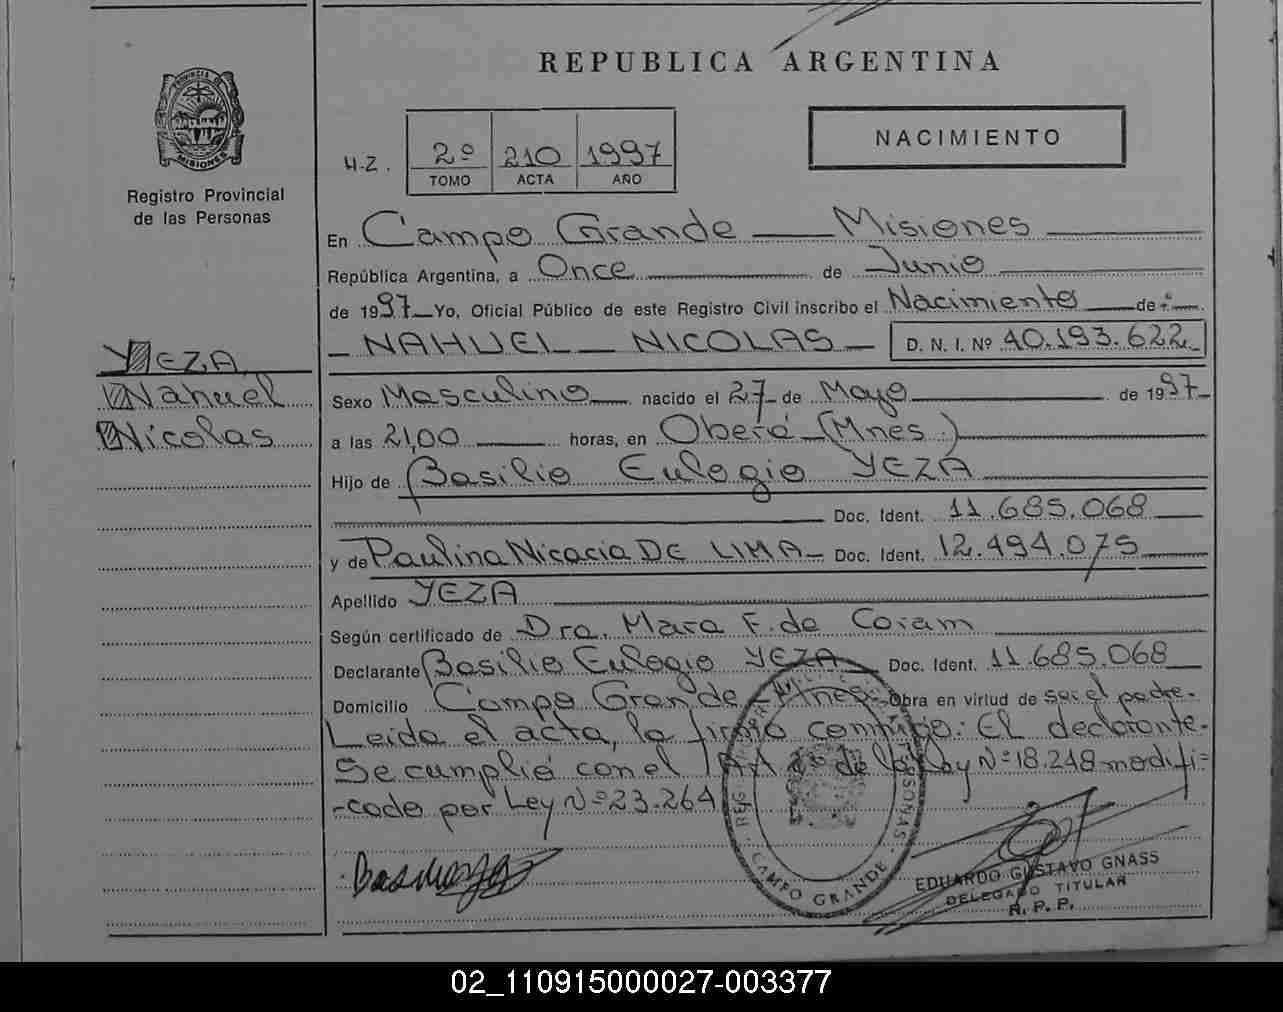 REPUBLICA ARGENTINA
PROVINCIA DE MISIONES
Registro Provincial
de las Personas
H-Z.
2º 210 1997
TOMO ACTA AÑO
NACIMIENTO
En Campo Grande Misiones
República Argentina, a Once de Junio
de 1997 Yo, Oficial Público de este Registro Civil inscribo el Nacimiento de
NAHUEL NICOLAS D. N. I. Nº 40.193.622
YEZA
Nahuel
Nicolas
Sexo Masculino nacido el 27 de Mayo de 1997
a las 21,00 horas, en Oberá (Mnes.)
Hijo de Basilio Eulogio YEZA
Doc. Ident. 11.685.068
y de Paulina Nicacia DE LIMA Doc. Ident. 12.494.075
Apellido YEZA
Según certificado de Dra. Mara F. de Coram
Declarante Basilio Eulogio YEZA Doc. Ident. 11.685.068
Domicilio Campo Grande - Mnes. Obra en virtud de ser el padre.
Leida el acta, la firmó conmigo: El declarante.
Se cumplió con el de la Ley Nº 18.248 modifi-
-cado por Ley Nº 23.264
CAMPO GRANDE
EDUARDO GUSTAVO GNASS
DELEGADO TITULAR
R. P. P.
02_110915000027-003377